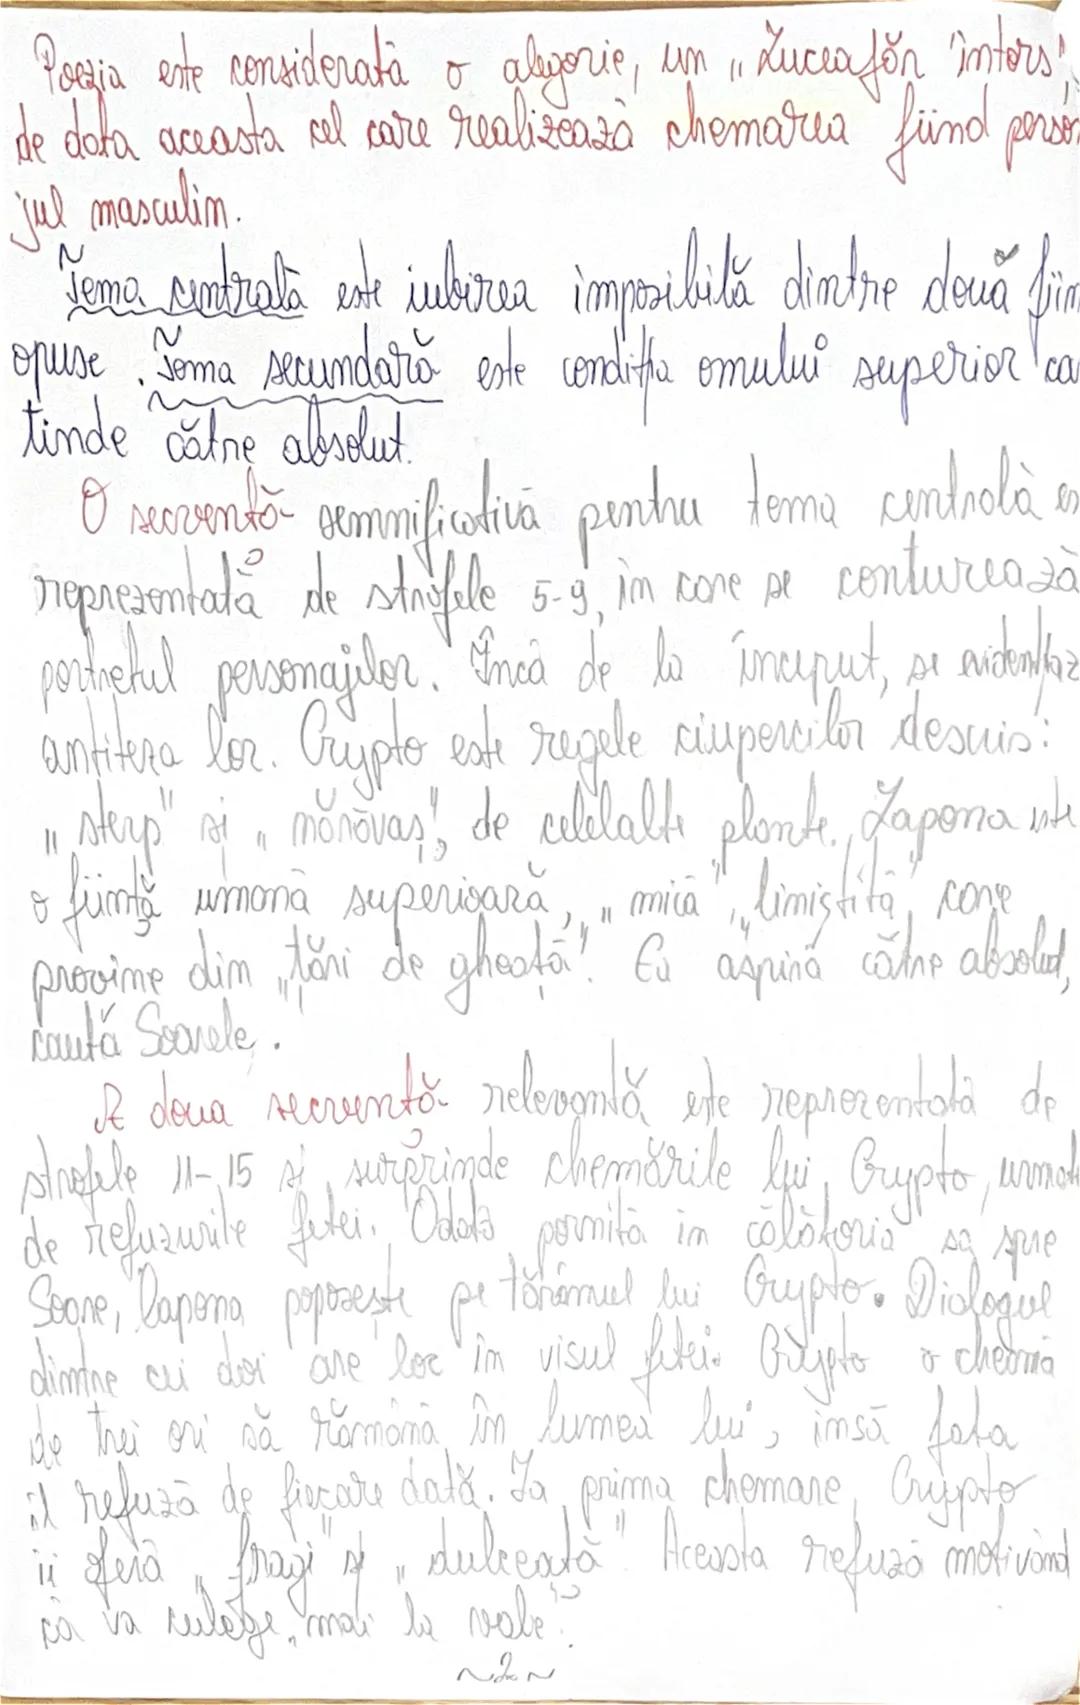 Poezia este considerată o alegorie, un „Luceafăr întors”,
de data aceasta cel care realizează chemarea fiind person
jul masculin.
Tema centrală este iubirea imposibilă dintre două fiin
opuse. Tema secundară este condiția omului superior ca
tinde către absolut.
O secvență semnificativă pentru tema centrală es
reprezentată de strofele 5-9, în care se conturează
portretul personajilor. Încă de la început, se evidențiaz
antiteza lor. Crypto este regele ciupercilor descris:
„sterp” și „mănăvaș”, de celelalte plante. Lapona este
o ființă umană superioară, „mică”, „liniștită”, care
provine din „țări de gheață”. Ea aspiră către absolut,
caută Soarele.
A doua secvență relevantă este reprezentată de
strofele 11-15 și surprinde chemările lui Crypto, urmat
de refuzurile fetei. Odată pornită în călătoria sa spre
Soare, lapona poposește pe tărâmul lui Crypto. Dialogul
dintre cei doi are loc în visul fetei. Crypto o cheamă
de trei ori să rămână în lumea lui, însă fata
îl refuză de fiecare dată. La prima chemare, Crypto
îi oferă „fragi” și „dulceață”. Aceasta refuză motivând
că va culege „mai la vale”.
~2~